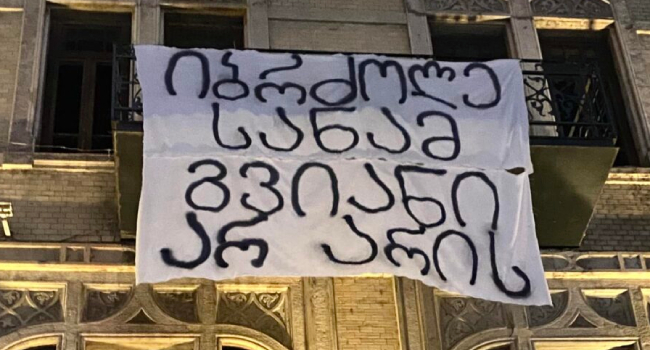 იბრძოლე
სანამ
გვიანი
არ არის